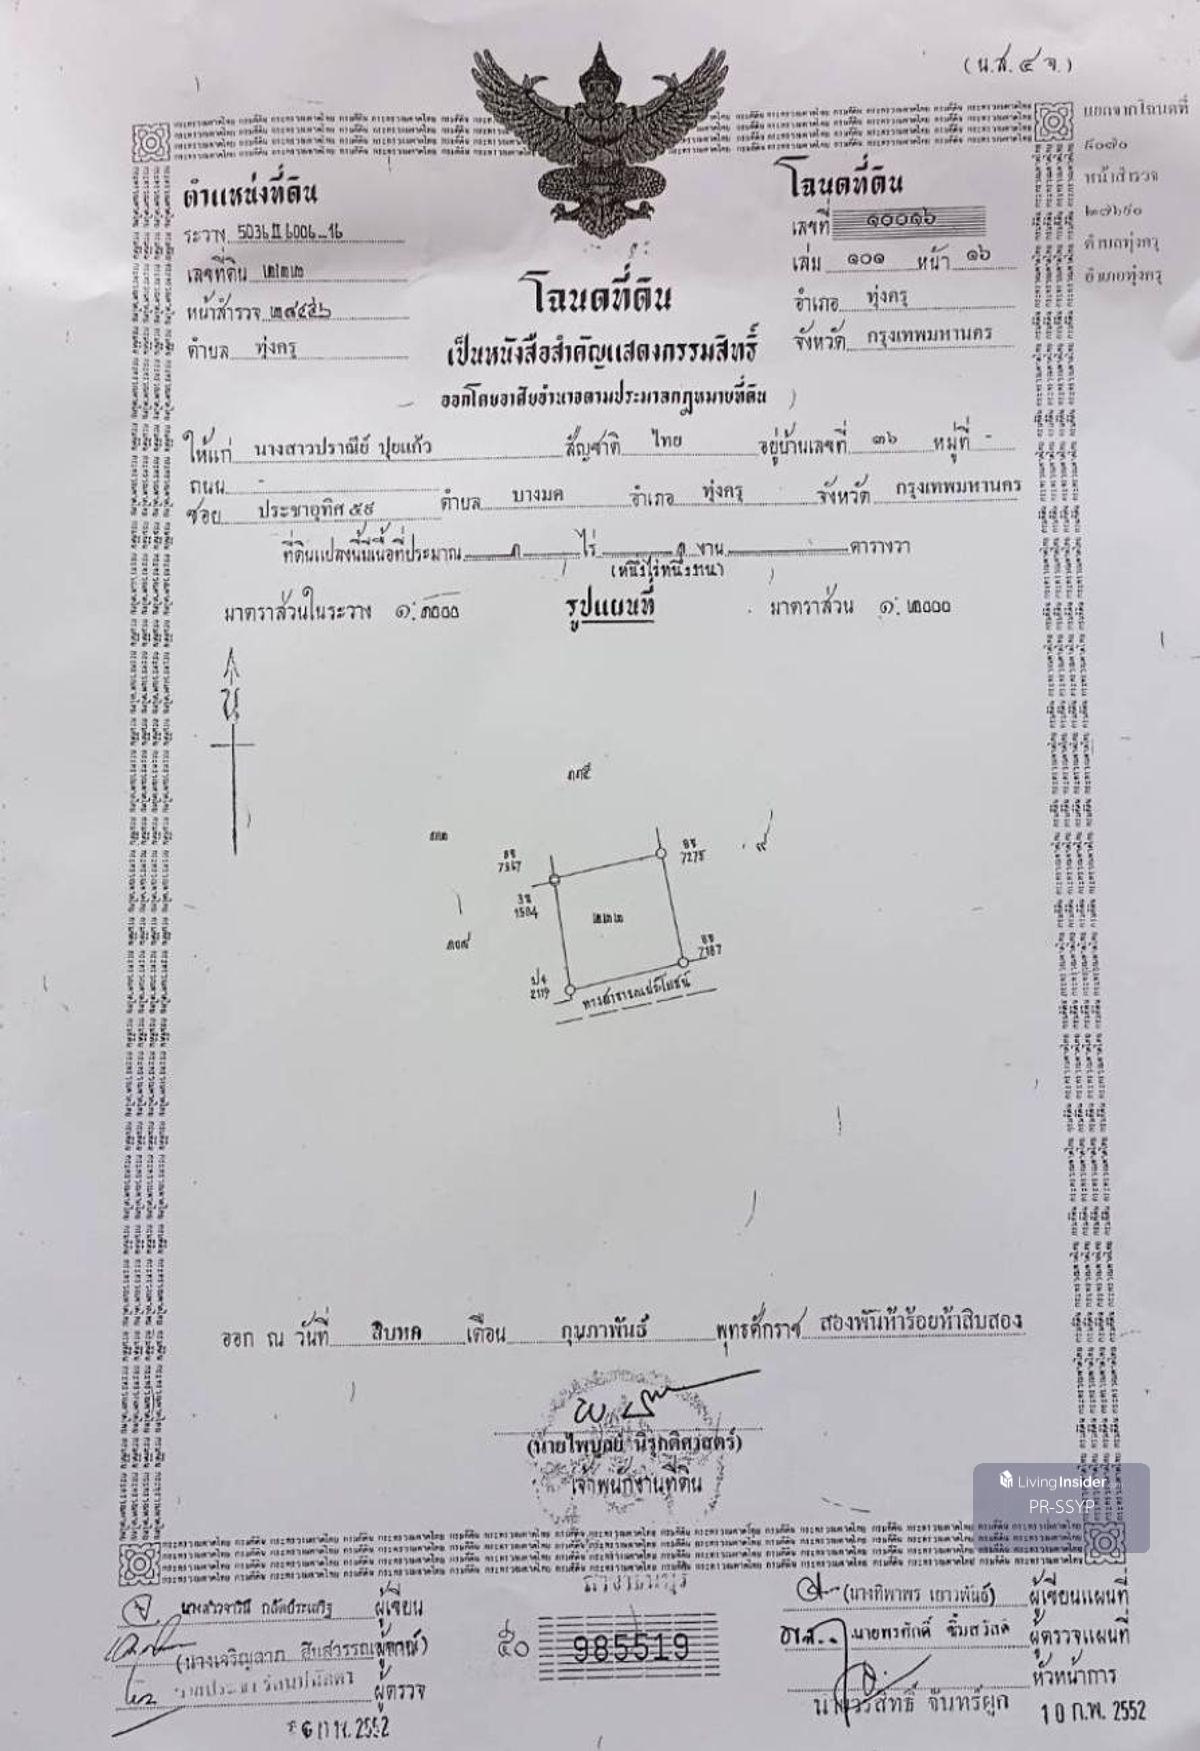 (น.ส. ๔ จ.)
แยกจากโฉนดที่
หน้าสำรวจ
ตำบลทุ่งครุ
อำเภอทุ่งครุ
ตำแหน่งที่ดิน
ระวาง 5036 II 6006-16
เลขที่ดิน ๒๒๒
หน้าสำรวจ
ตำบล ทุ่งครุ
โฉนดที่ดิน
เลขที่ ๑๐๐๑๖
เล่ม ๑๐๑ หน้า ๑๖
อำเภอ ทุ่งครุ
จังหวัด กรุงเทพมหานคร
โฉนดที่ดิน
เป็นหนังสือสำคัญแสดงกรรมสิทธิ์
ออกโดยอาศัยอำนาจตามประมวลกฎหมายที่ดิน
ให้แก่ นางสาวปราณีย์ ปุยแก้ว สัญชาติ ไทย อยู่บ้านเลขที่ ๓๖ หมู่ที่ -
ถนน -
ซอย ประชาอุทิศ ตำบล บางมด อำเภอ ทุ่งครุ จังหวัด กรุงเทพมหานคร
ที่ดินแปลงนี้มีเนื้อที่ประมาณ ๑ ไร่ ๑ งาน ตารางวา
(หนึ่งไร่หนึ่งงาน)
มาตราส่วนในระวาง ๑:๑๐๐๐ รูปแผนที่ มาตราส่วน ๑:๒๐๐๐
น
7275
๙
๒๒๒
7187
ป4
2119
ทางสาธารณประโยชน์
ออก ณ วันที่ สิบหก เดือน กุมภาพันธ์ พุทธศักราช สองพันห้าร้อยห้าสิบสอง
(นายไพบูลย์ นิรุกติศาสตร์)
เจ้าพนักงานที่ดิน
LivingInsider
PR-SSYP
ผู้เขียน
ผู้ตรวจ
๕๐ 985519
(นางทิพาพร เยาวพันธ์) ผู้เขียนแผนที่
นายพรศักดิ์ ผู้ตรวจแผนที่
หัวหน้าการ
10 ก.พ. 2552